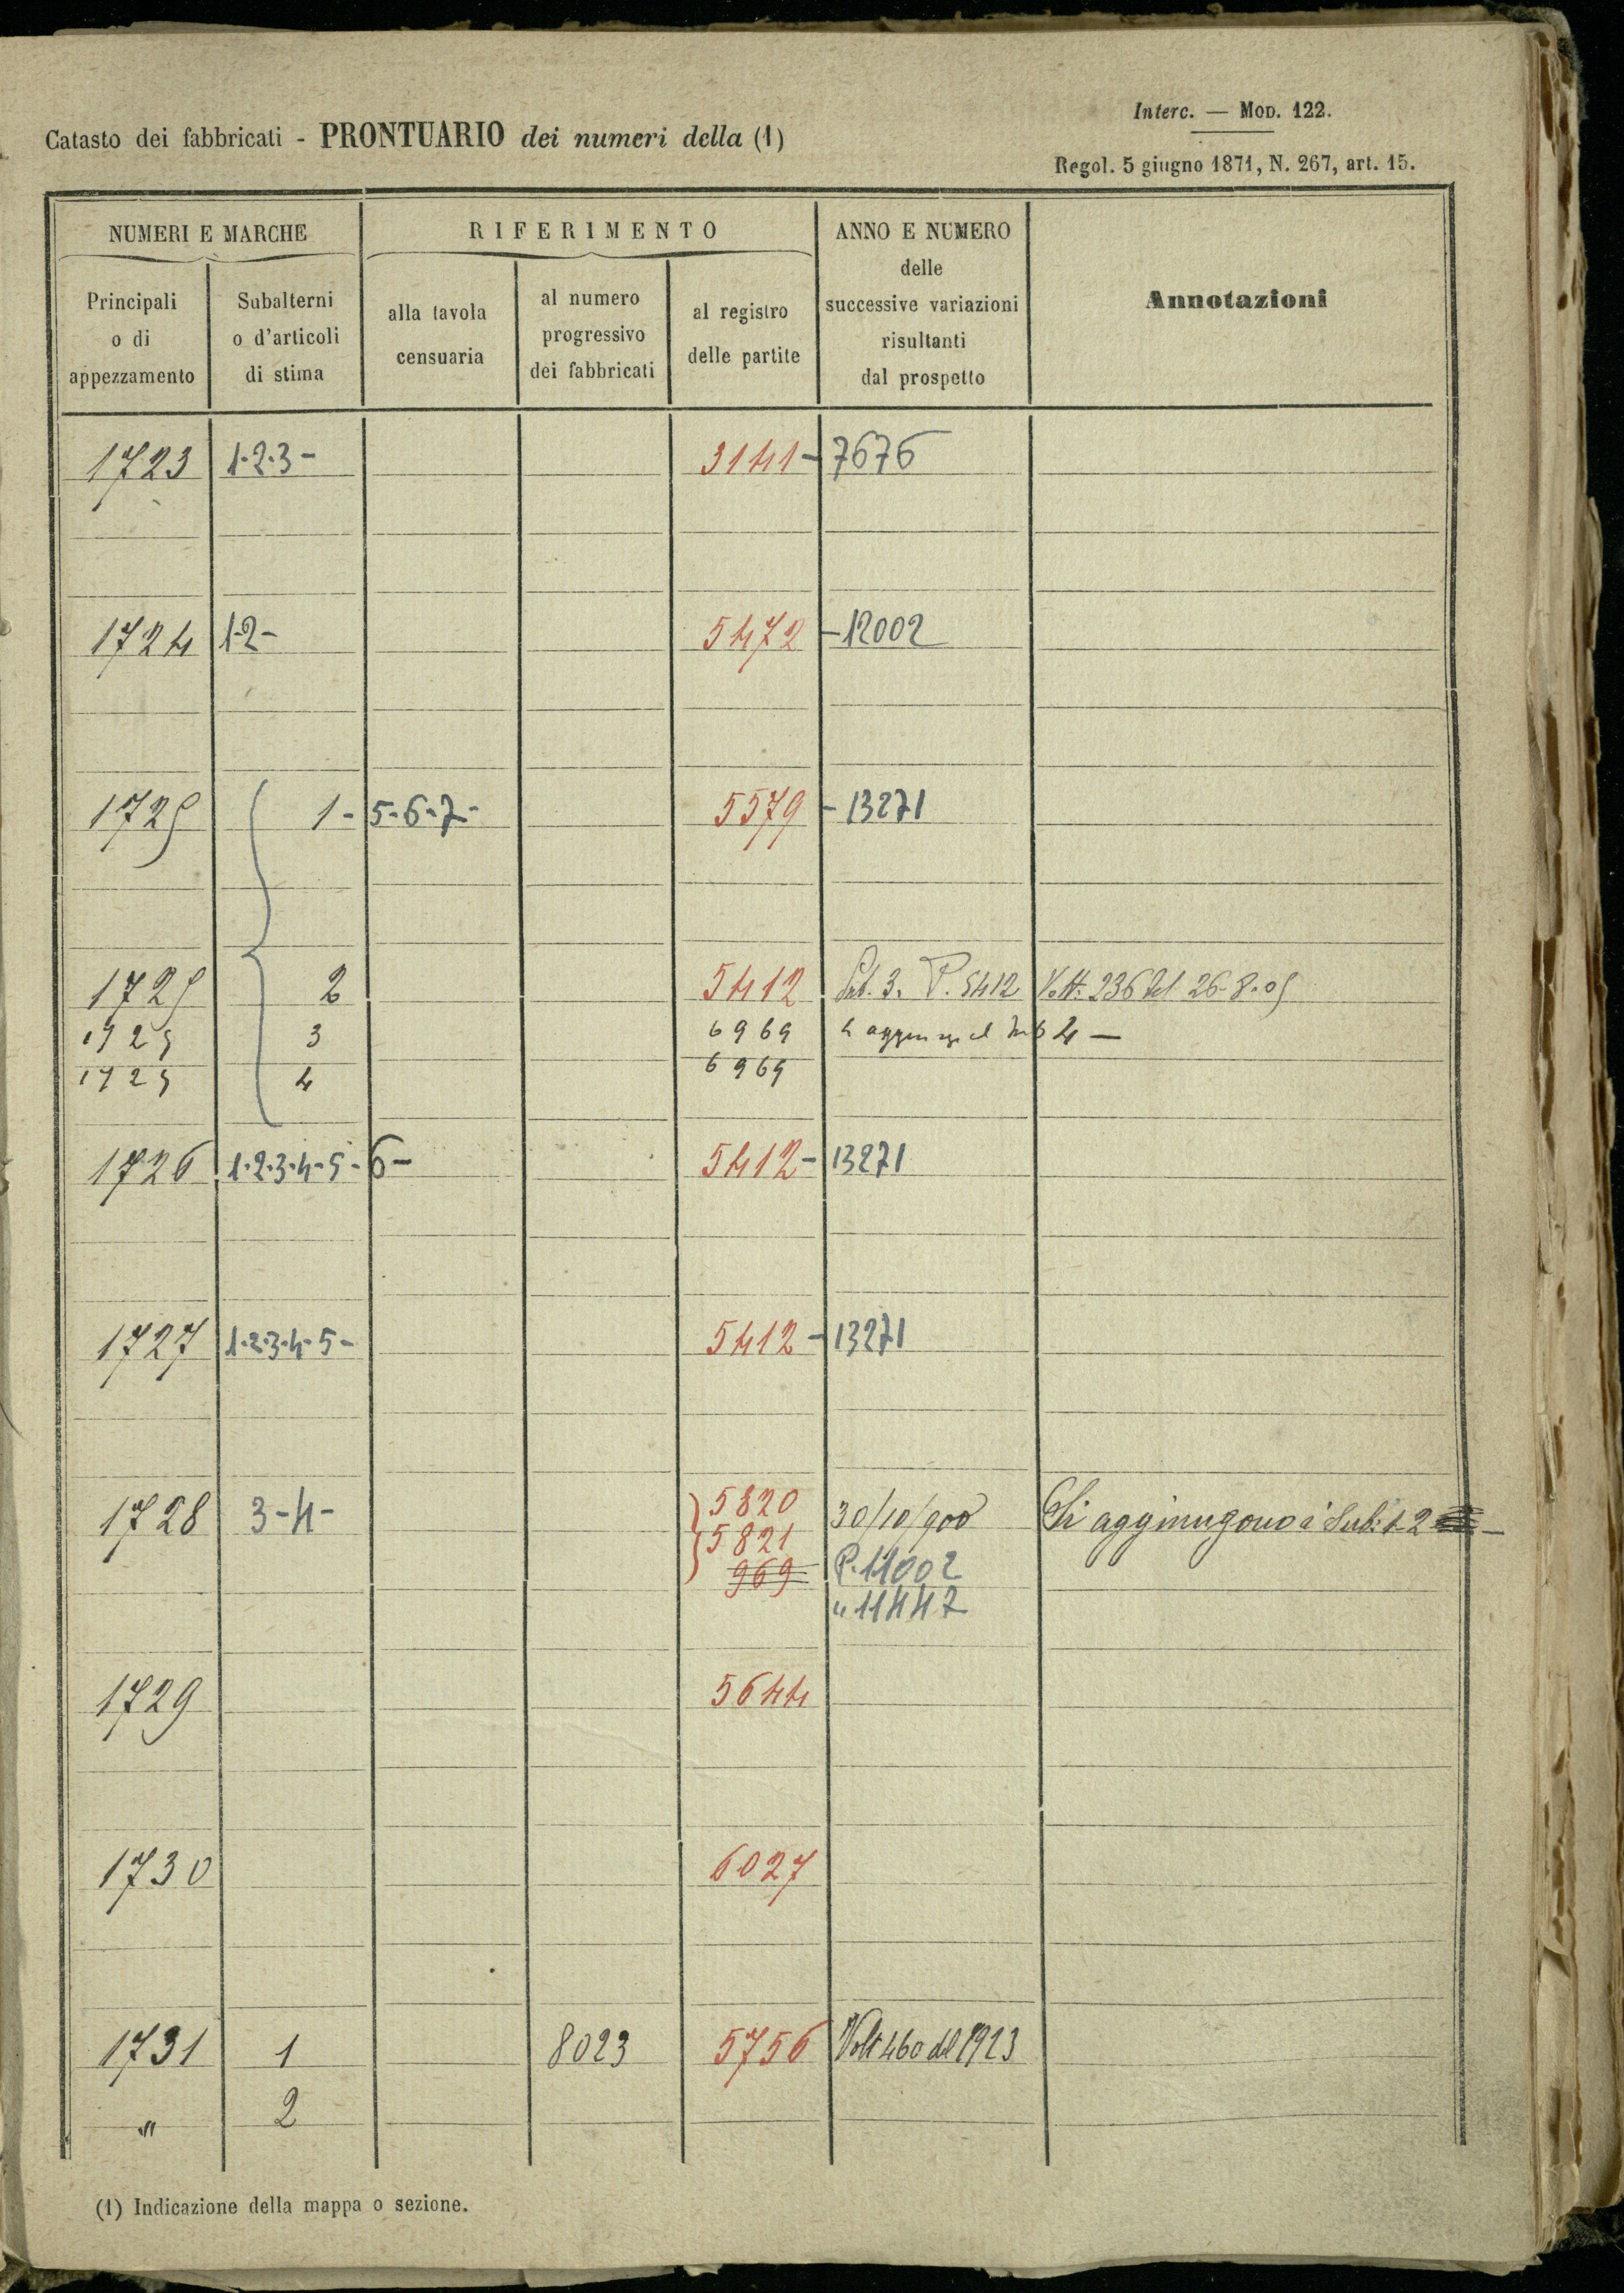 Interc. — Mod. 122.
Catasto dei fabbricati - PRONTUARIO dei numeri della (1)
Regol. 5 giugno 1871, N. 267, art. 15.
NUMERI E MARCHE
RIFERIMENTO
ANNO E NUMERO
delle
successive variazioni
risultanti
dal prospetto
Annotazioni
Principali
o di
appezzamento
Subalterni
o d'articoli
di stima
alla tavola
censuaria
al numero
progressivo
dei fabbricati
al registro
delle partite
1723 1-2-3- 3141- 7676
1724 1-2- 5472 -12002
1725 1- 5-6-7- 5579 - 13271
1725 2 5412 Sub. 3. P. 5412 236 del 26-8-05
1725 3 6969 Sub 4 —
1725 4 6969
1726 1-2-3-4-5-6- 5412- 13271
1727 1-2-3-4-5- 5412- 13271
1728 3-4- 5820 30/10/900 Si aggiungono i Sub: 1-2 —
5821
969 P. 11002
" 11447
1729 5644
1730 6027
1731 1 8023 5756 Volt 460 del 1923
" 2
(1) Indicazione della mappa o sezione.